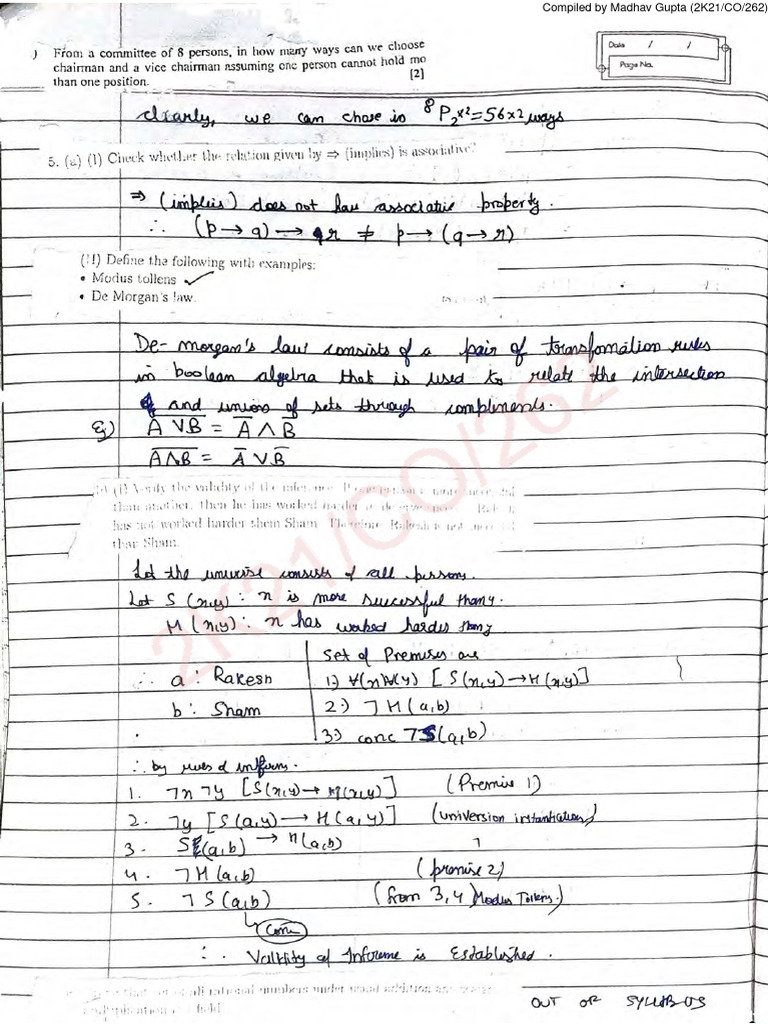 Compiled by Madhav Gupta (2K21/CO/262)
) From a committee of 8 persons, in how many ways can we choose
chairman and a vice chairman assuming one person cannot hold mo
than one position. [2]
Date / /
Page No.
clearly, we can chose in ⁸P₂ x² = 56 x 2 ways
5. (a) (I) Check whether the relation given by ⇒ (implies) is associative?
⇒ (implies) does not have associative property.
∴ (p → q) → r ≠ p → (q → r)
(II) Define the following with examples:
• Modus tollens ✓
• De Morgan's law.
De-morgan's law consists of a pair of transfomation rules
in boolean algebra that is used to relate the intersection
and union of sets through complements.
Eg) A̅ ̅V̅ ̅B̅ = A̅ ∧ B̅
A̅ ̅∧̅ ̅B̅ = A̅ ∨ B̅
(i) Verify the validity of the
than another, then he has worked harder
has not worked harder them Sham. Therefore, Rakesh is not
than Sham.
2K21/CO/262
Let the universe consists of all persons.
Let S (x,y) : x is more successful than y.
H (x,y) : x has worked harder than y
∴ a : Rakesh
b : Sham
Set of Premises are
1) ∀(x)∀(y) [S(x,y) → H(x,y)]
2:) ¬H(a,b)
3:) conc ¬S(a,b)
∴ by rules of inference.
1. ¬x ¬y [S(x,y) → H(x,y)] (Premise 1)
2. ¬y [S(a,y) → H(a,y)] (universion instantiation)
3. S(a,b) → H(a,b) "
4. ¬H(a,b) (premise 2)
5. ¬S(a,b) (from 3,4) Modus Tollens.)
Conc
∴ Validity of Inference is Established.
of all rational numbers under usual addition and
multiplication is a field
OUT OF SYLLABUS